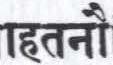 हतनौ